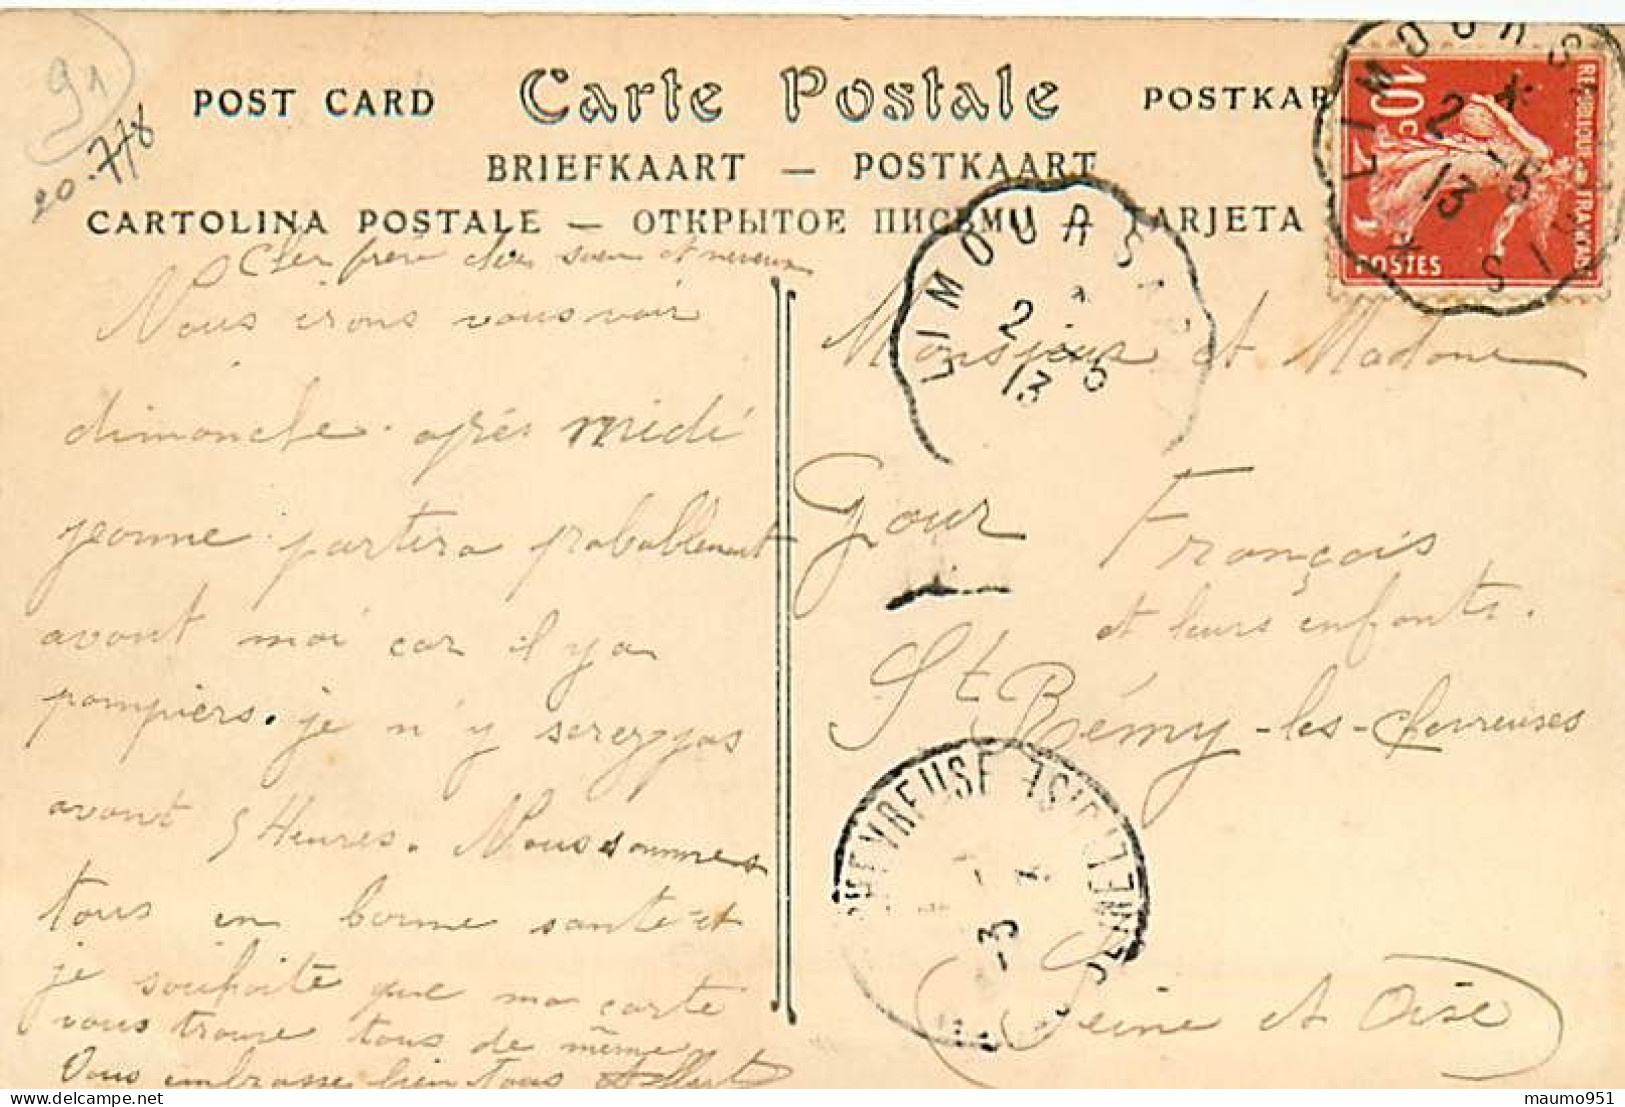 91
20.778
POST CARD Carte Postale POSTKAR
BRIEFKAART — POSTKAART
CARTOLINA POSTALE — ОТКРЫТОЕ ПИСЬМО A TARJETA
REPUBLIQUE FRANÇAISE
10c
POSTES
LIMOURS
2 - 5
13
LIMOURS
2 5
13
Cher frère chère soeur et neveux
Nous irons vous voir
dimanche après midi
jeanne partira probablement
avant moi car il y a
pompiers. je n'y serez pas
avant 5 Heures. Nous sommes
tous en bonne santé et
je souhaite que ma carte
vous trouve tous de même
Vous embrasse bien tous Albert
Monsieur et Madame
Gour François
et leurs enfants.
St Rémy-les-chevreuses
(Seine et Oise)
CHEVREUSE
SEINE-ET-OISE
-3
maumo951